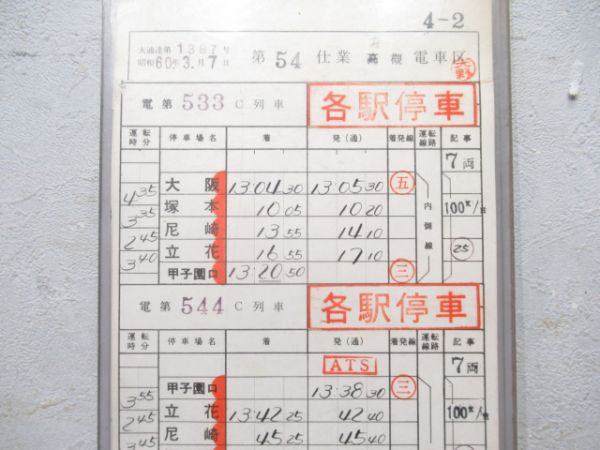 4-2
大通達第1387号
昭和60年3月7日
第 54 仕業 高槻 電車区
電 第 533 C 列車 各駅停車
運転時分 停車場名 着 発(通) 着発線 運転線路 記事
7両
大阪 13:04 30 13:05 30 五
4 35 内側線
塚本 10 05 10 20 100k/
3 35
尼崎 13 55 14 10
2 45
立花 16 55 17 10 25
3 40
甲子園口 13:20 50 三
電 第 544 C 列車 各駅停車
運転時分 停車場名 着 発(通) 着発線 運転線路 記事
ATS 7両
甲子園口 13:38 30 三
3 55
立花 13:42 25 42 40 100k/
2 45
尼崎 45 25 45 40
3 45